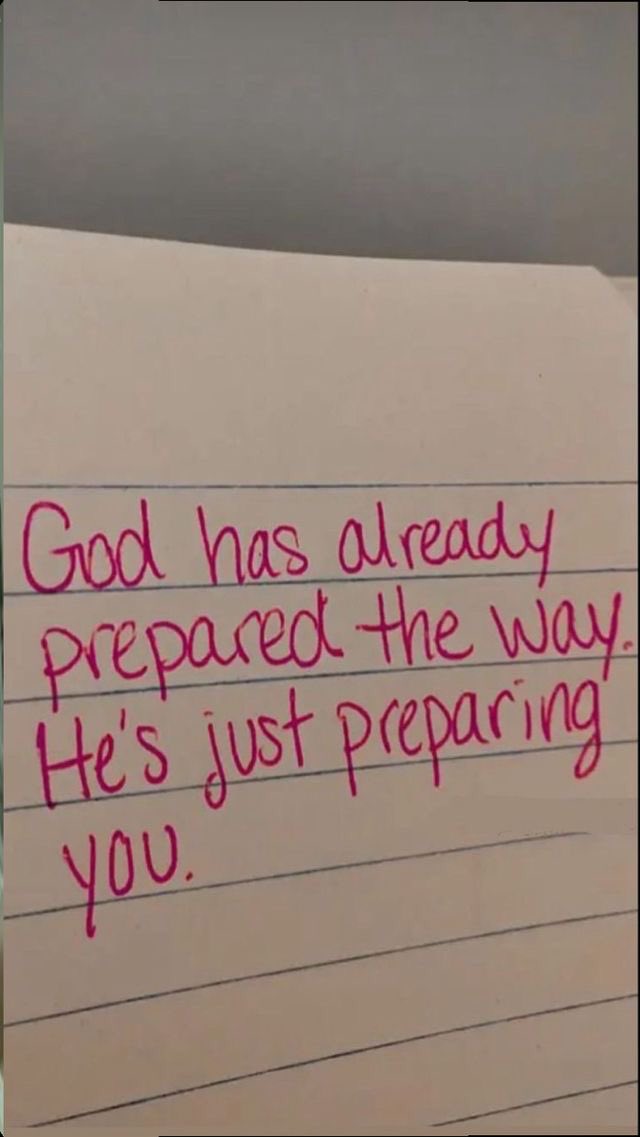 God has already
prepared the way.
He's just preparing
you.